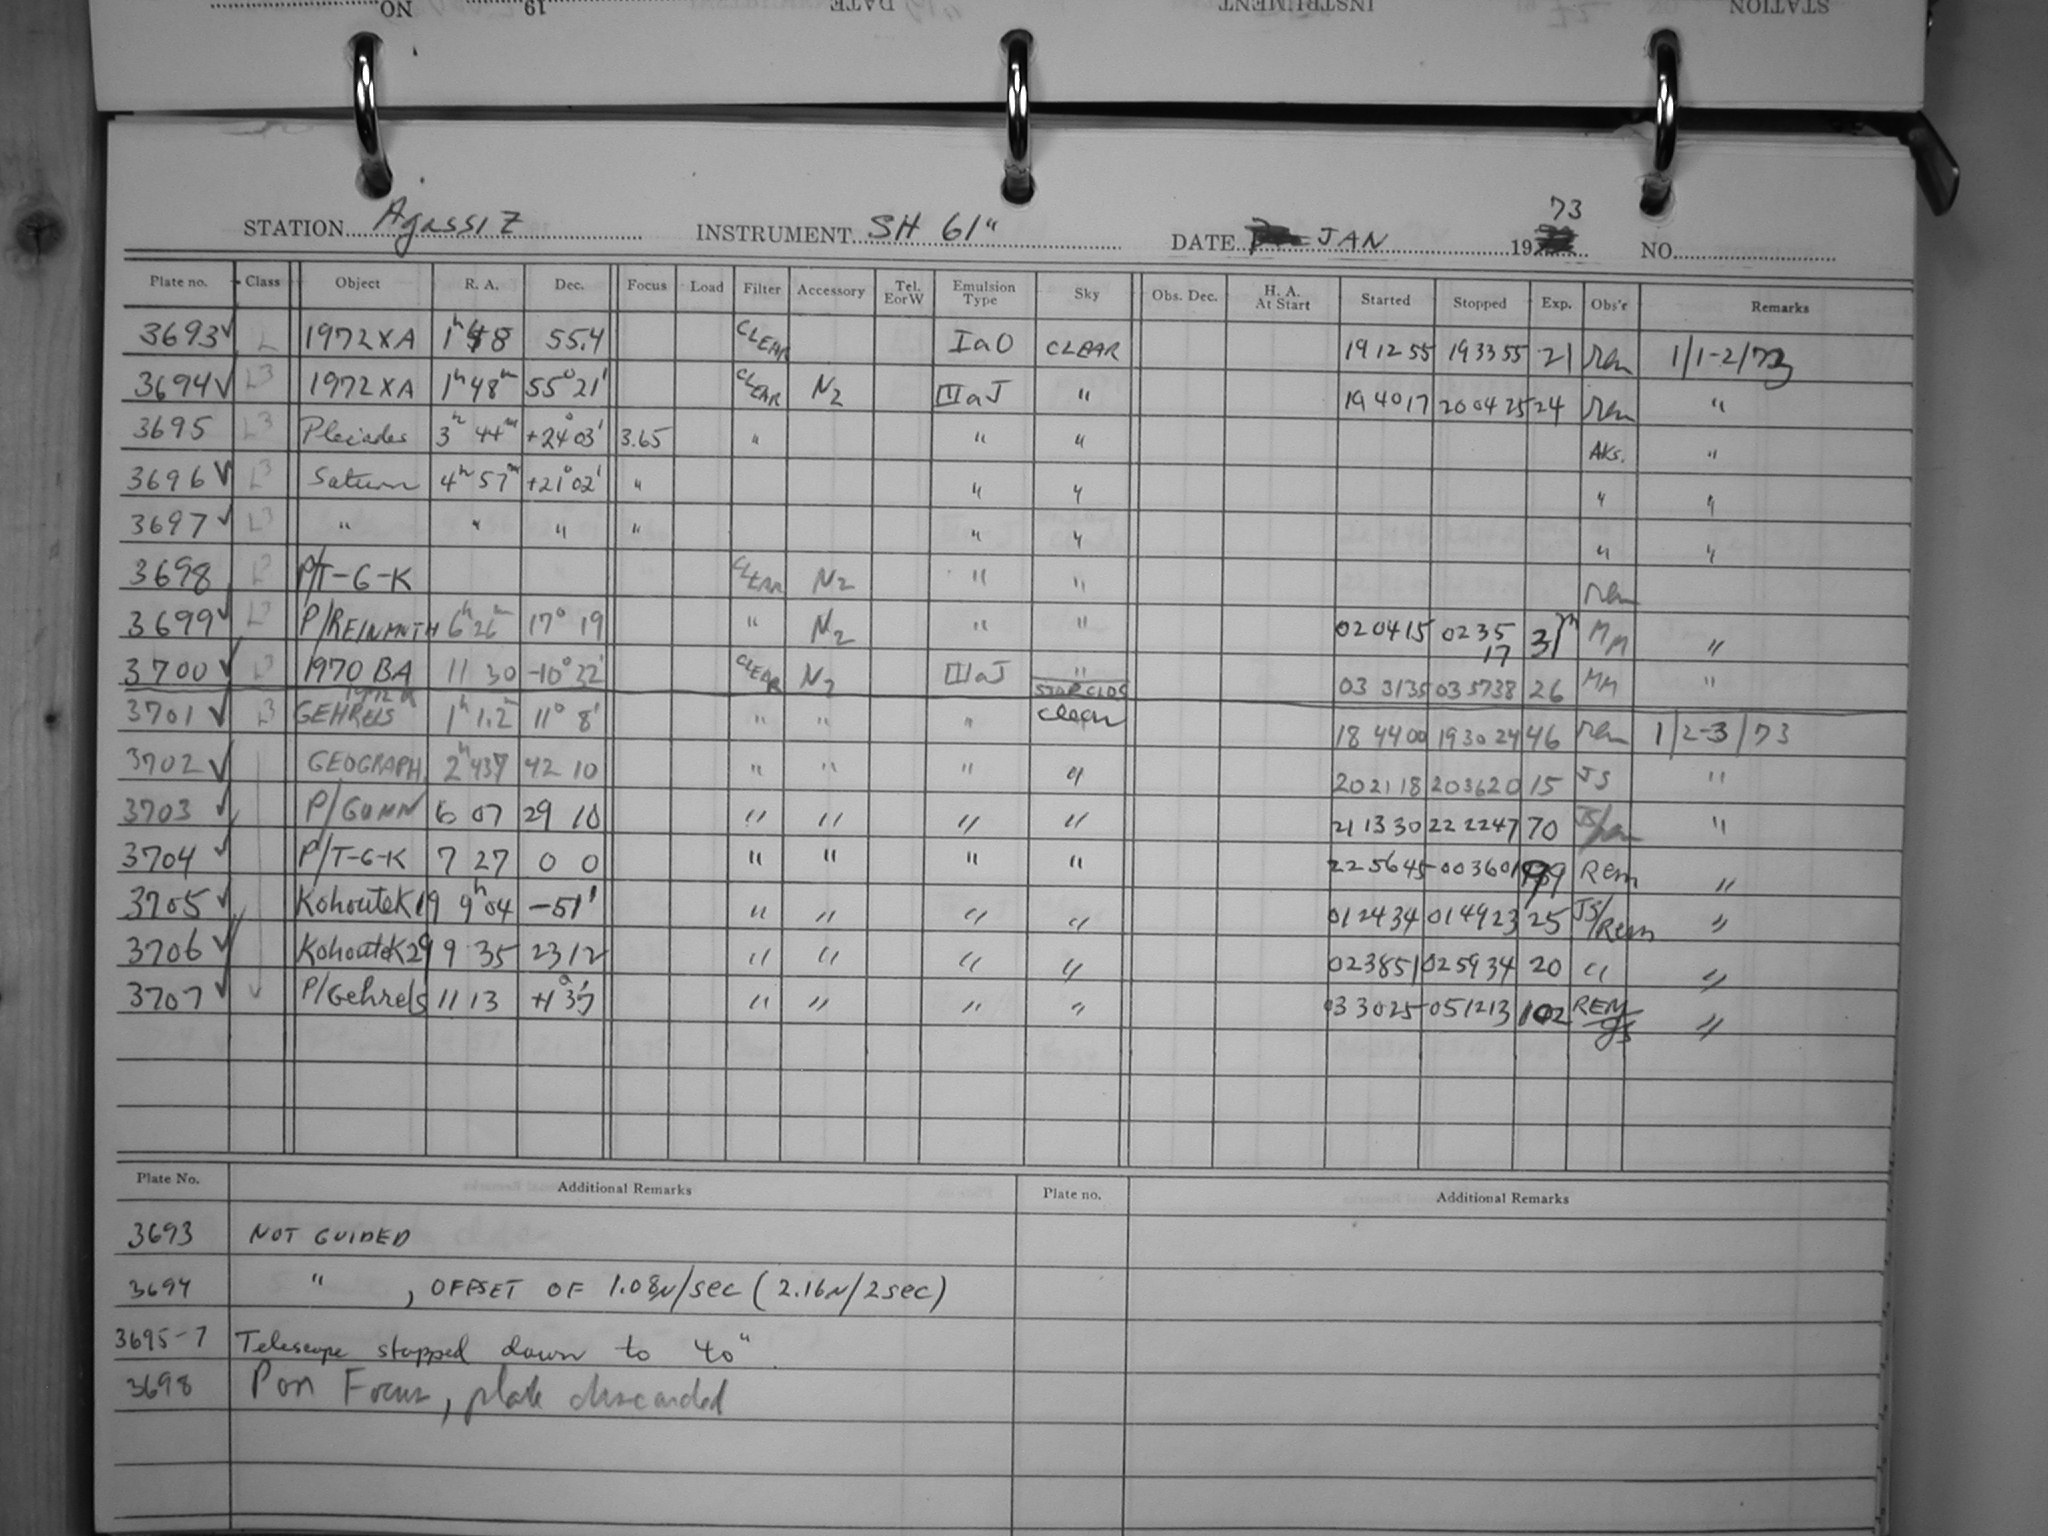 NO 19 DATE INSTRUMENT STATION
STATION Agassiz INSTRUMENT SH 61" DATE JAN 1973 NO.
Plate no. Class Object R. A. Dec. Focus Load Filter Accessory Tel. E or W Emulsion Type Sky Obs. Dec. H. A. At Start Started Stopped Exp. Obs'r Remarks
3693 ✓ L 1972XA 1h 48 55.4 CLEAR IaO CLEAR 19 12 55 19 33 55 21 rem 1/1-2/73
3694 ✓ L3 1972XA 1h 48m 55° 21' CLEAR N2 IIIaJ " 19 40 17 20 04 25 24 rem "
3695 L3 Pleiades 3h 44m +24° 03' 3.65 " " " AKs. "
3696 ✓ L3 Saturn 4h 57m +21° 02' " " " " "
3697 ✓ L3 " " " " " " " "
3698 L3 P/T-G-K CLEAR N2 " " rem
3699 ✓ L3 P/REINMUTH 6h 26m 17° 19 " N2 " " 02 04 15 02 35 17 31m MM "
3700 ✓ L3 1970 BA 11 30 -10° 32' CLEAR N2 IIIaJ " 03 31 35 03 57 38 26 MM "
3701 ✓ L3 GEHRELS 1972 1h 1.2m 11° 8' " " " clean 18 44 00 19 30 24 46 rem 1/2-3/73
3702 ✓ GEOGRAPH. 2h 42 10 " " " " 20 21 18 20 36 20 15 JS "
3703 ✓ P/GUNN 6 07 29 10 " " " " 21 13 30 22 22 47 70 JS/rem "
3704 ✓ P/T-G-K 7 27 0 0 " " " " 22 56 45 00 36 01 99 Rem "
3705 ✓ Kohoutek 19 9h 04 -51' " " " " 01 24 34 01 49 23 25 JS/Rem "
3706 ✓ Kohoutek 29 9 35 23 12 " " " " 02 38 51 02 59 34 20 " "
3707 ✓ P/Gehrels 11 13 +1° 37' " " " " 03 30 25 05 12 13 102 REM/JS "
Plate No. Additional Remarks Plate no. Additional Remarks
3693 NOT GUIDED
3694 " , OFFSET OF 1.08μ/sec (2.16μ/2sec)
3695-7 Telescope stopped down to 40".
3698 Poor Focus, plate discarded